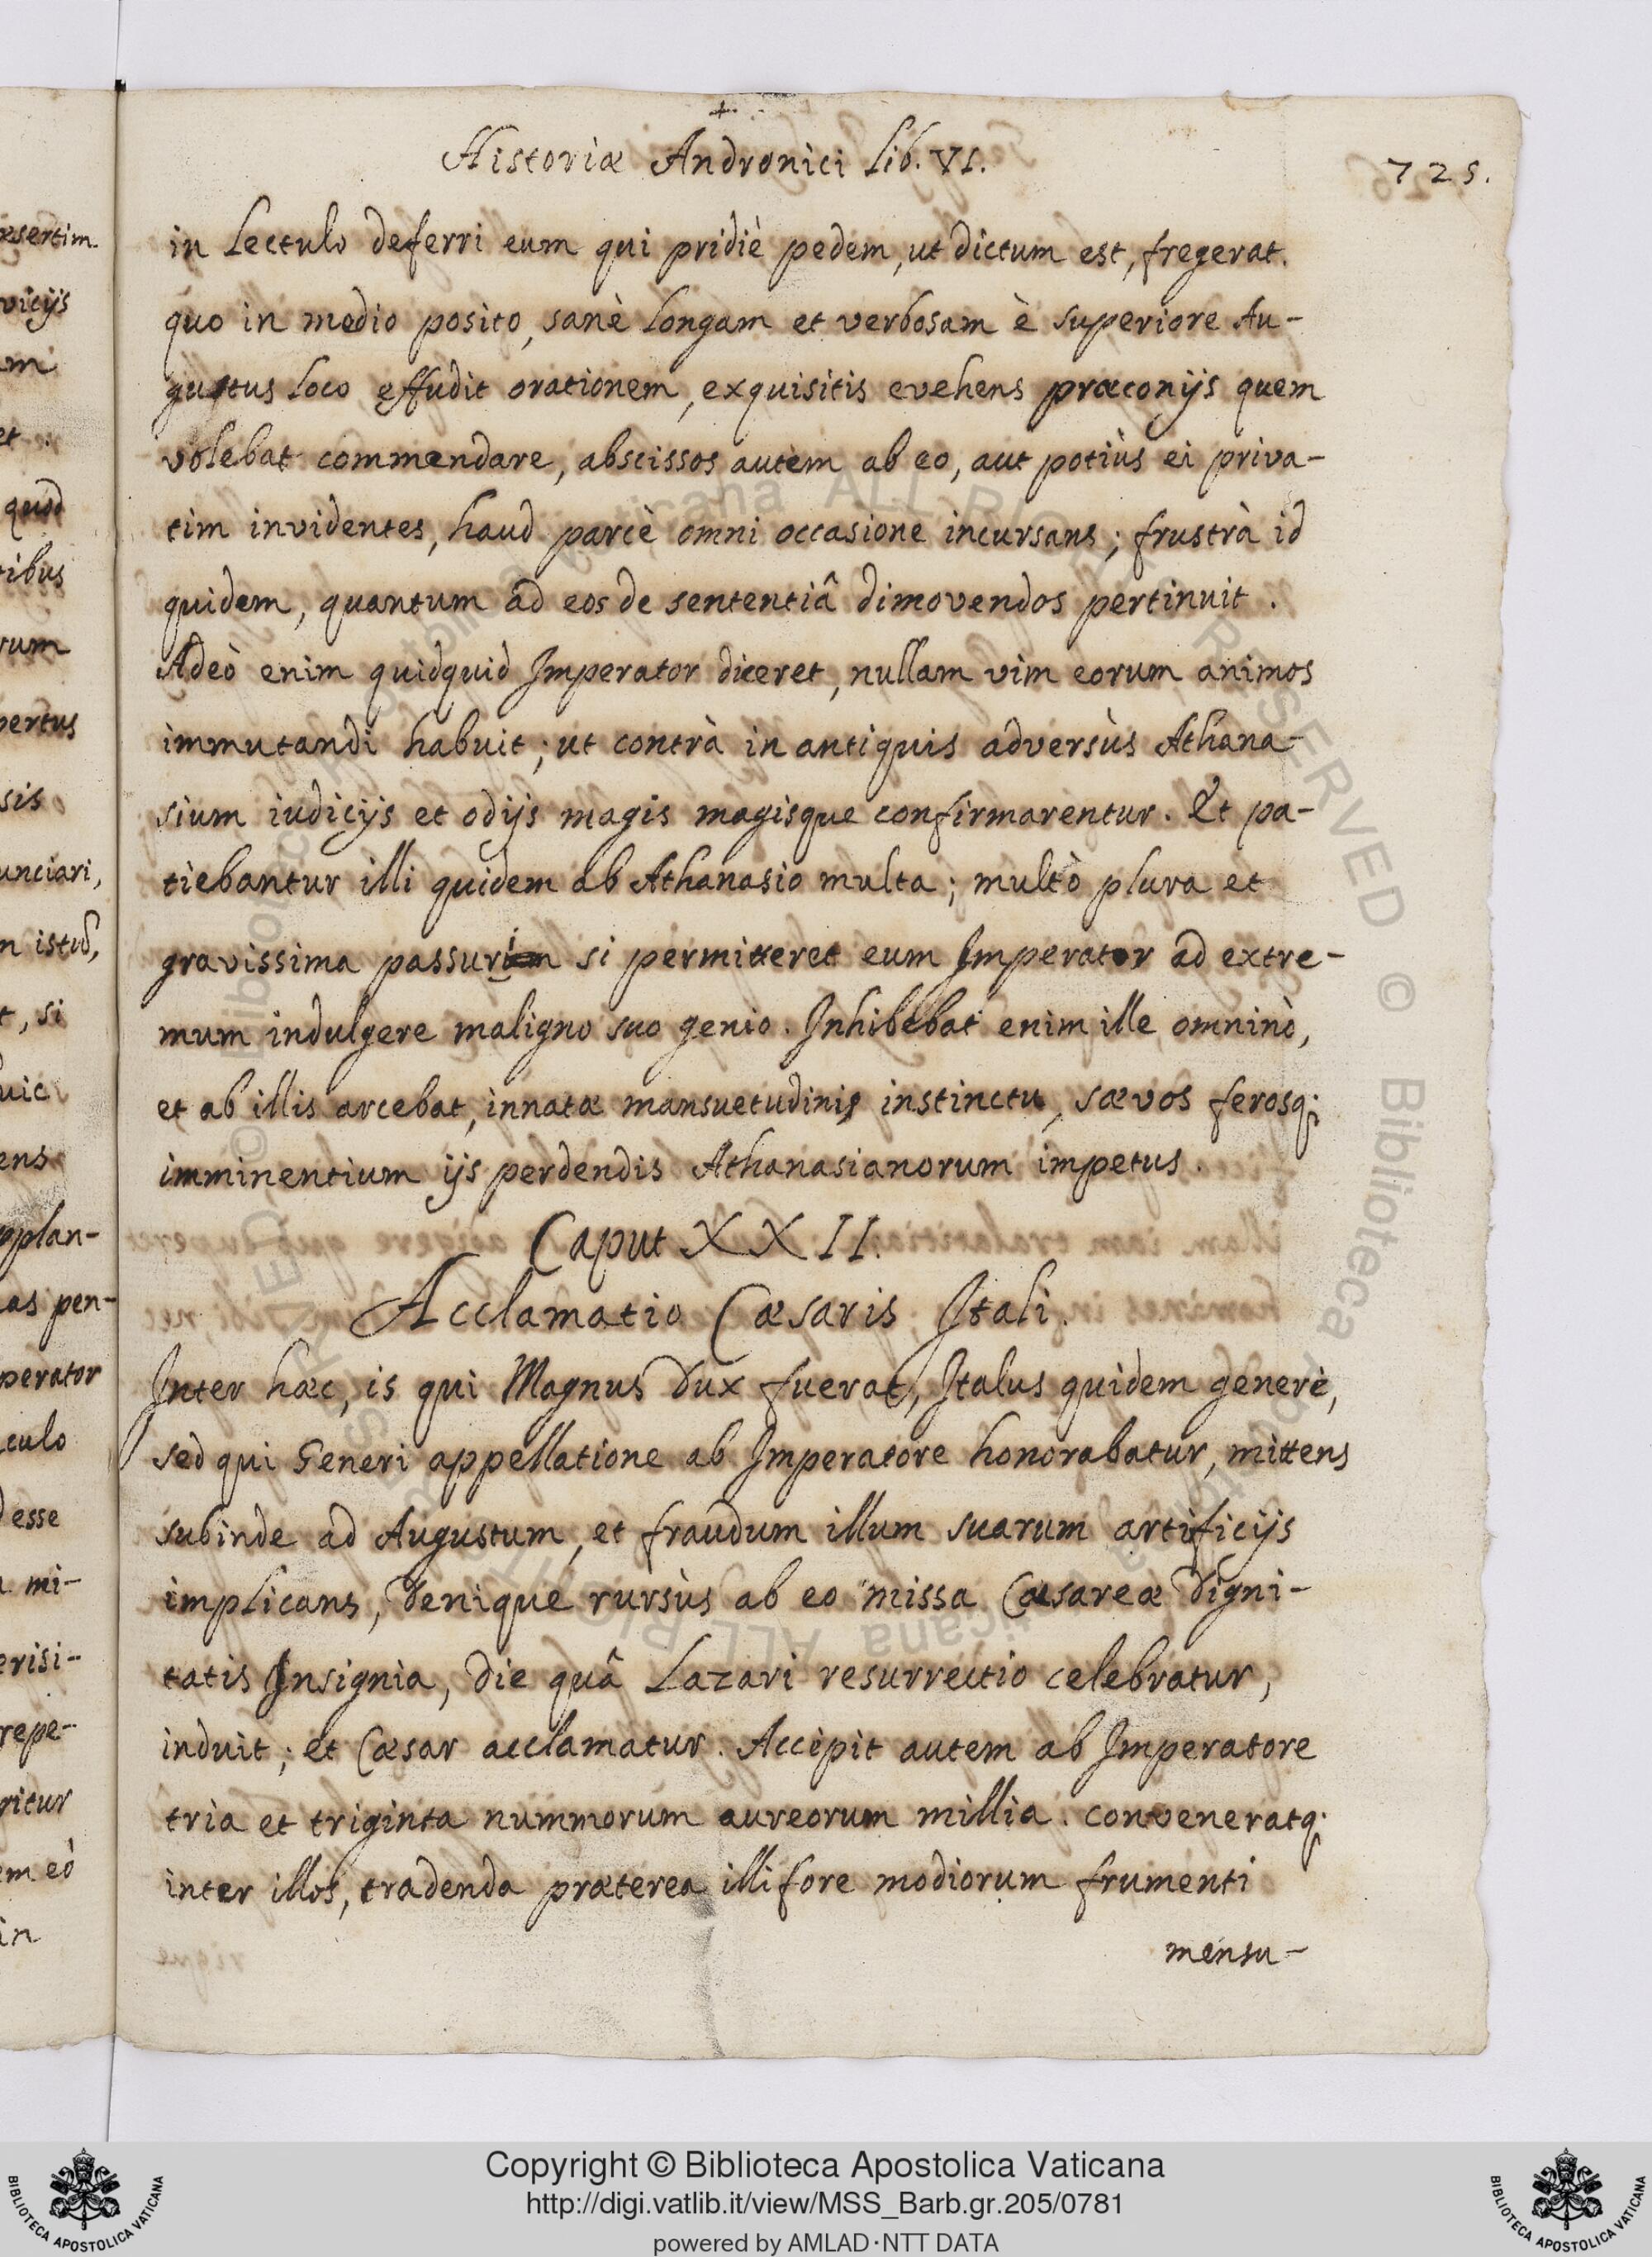 Historiæ Andronici Lib. VI.
725.
in Lectulo deferri eum qui pridiè pedem, ut dictum est, fregerat.
quo in medio posito, sanè longam et verbosam è superiore Au-
gustus loco effudit orationem, exquisitis evehens præconijs quem
volebat commendare, abscissos autem ab eo, aut potiùs ei priva-
tim invidentes, haud parcè omni occasione incursans; frustrà id
quidem, quantum ad eos de sententiâ dimovendos pertinuit.
Adeò enim quidquid Imperator diceret, nullam vim eorum animos
immutandi habuit; ut contrà in antiquis adversùs Athana-
sium iudicijs et odijs magis magisque confirmarentur. Et pa-
tiebantur illi quidem ab Athanasio multa; multò plura et
gravissima passuri si permitteret eum Imperator ad extre-
mum indulgere maligno suo genio. Inhibebat enim ille omninò,
et ab illis arcebat, innatæ mansuetudinis instinctu, sævos ferosq;
imminentium ijs perdendis Athanasianorum impetus.
Caput XXII.
Acclamatio Cæsaris Itali.
Inter hæc, is qui Magnus Dux fuerat, Italus quidem genere,
sed qui Generi appellatione ab Imperatore honorabatur, mittens
subinde ad Augustum, et fraudum illum suarum artificijs
implicans, denique rursùs ab eo missa Cæsareæ Digni-
tatis Insignia, die quâ Lazari resurrectio celebratur,
induit; et Cæsar acclamatur. Accepit autem ab Imperatore
tria et triginta nummorum aureorum millia. conveneratq;
inter illos, tradenda præterea illi fore modiorum frumenti
mensu-
æsertim.
vicijs
um
et
quod
tibus
rum
pertus
sis
unciari,
istud,
t, si
uic
ens
pplan-
as pen-
perator
culo
esse
mi-
erisi-
repe-
ritur
em eò
in
Copyright © Biblioteca Apostolica Vaticana
http://digi.vatlib.it/view/MSS_Barb.gr.205/0781
powered by AMLAD·NTT DATA
BIBLIOTECA APOSTOLICA VATICANA
BIBLIOTECA APOSTOLICA VATICANA